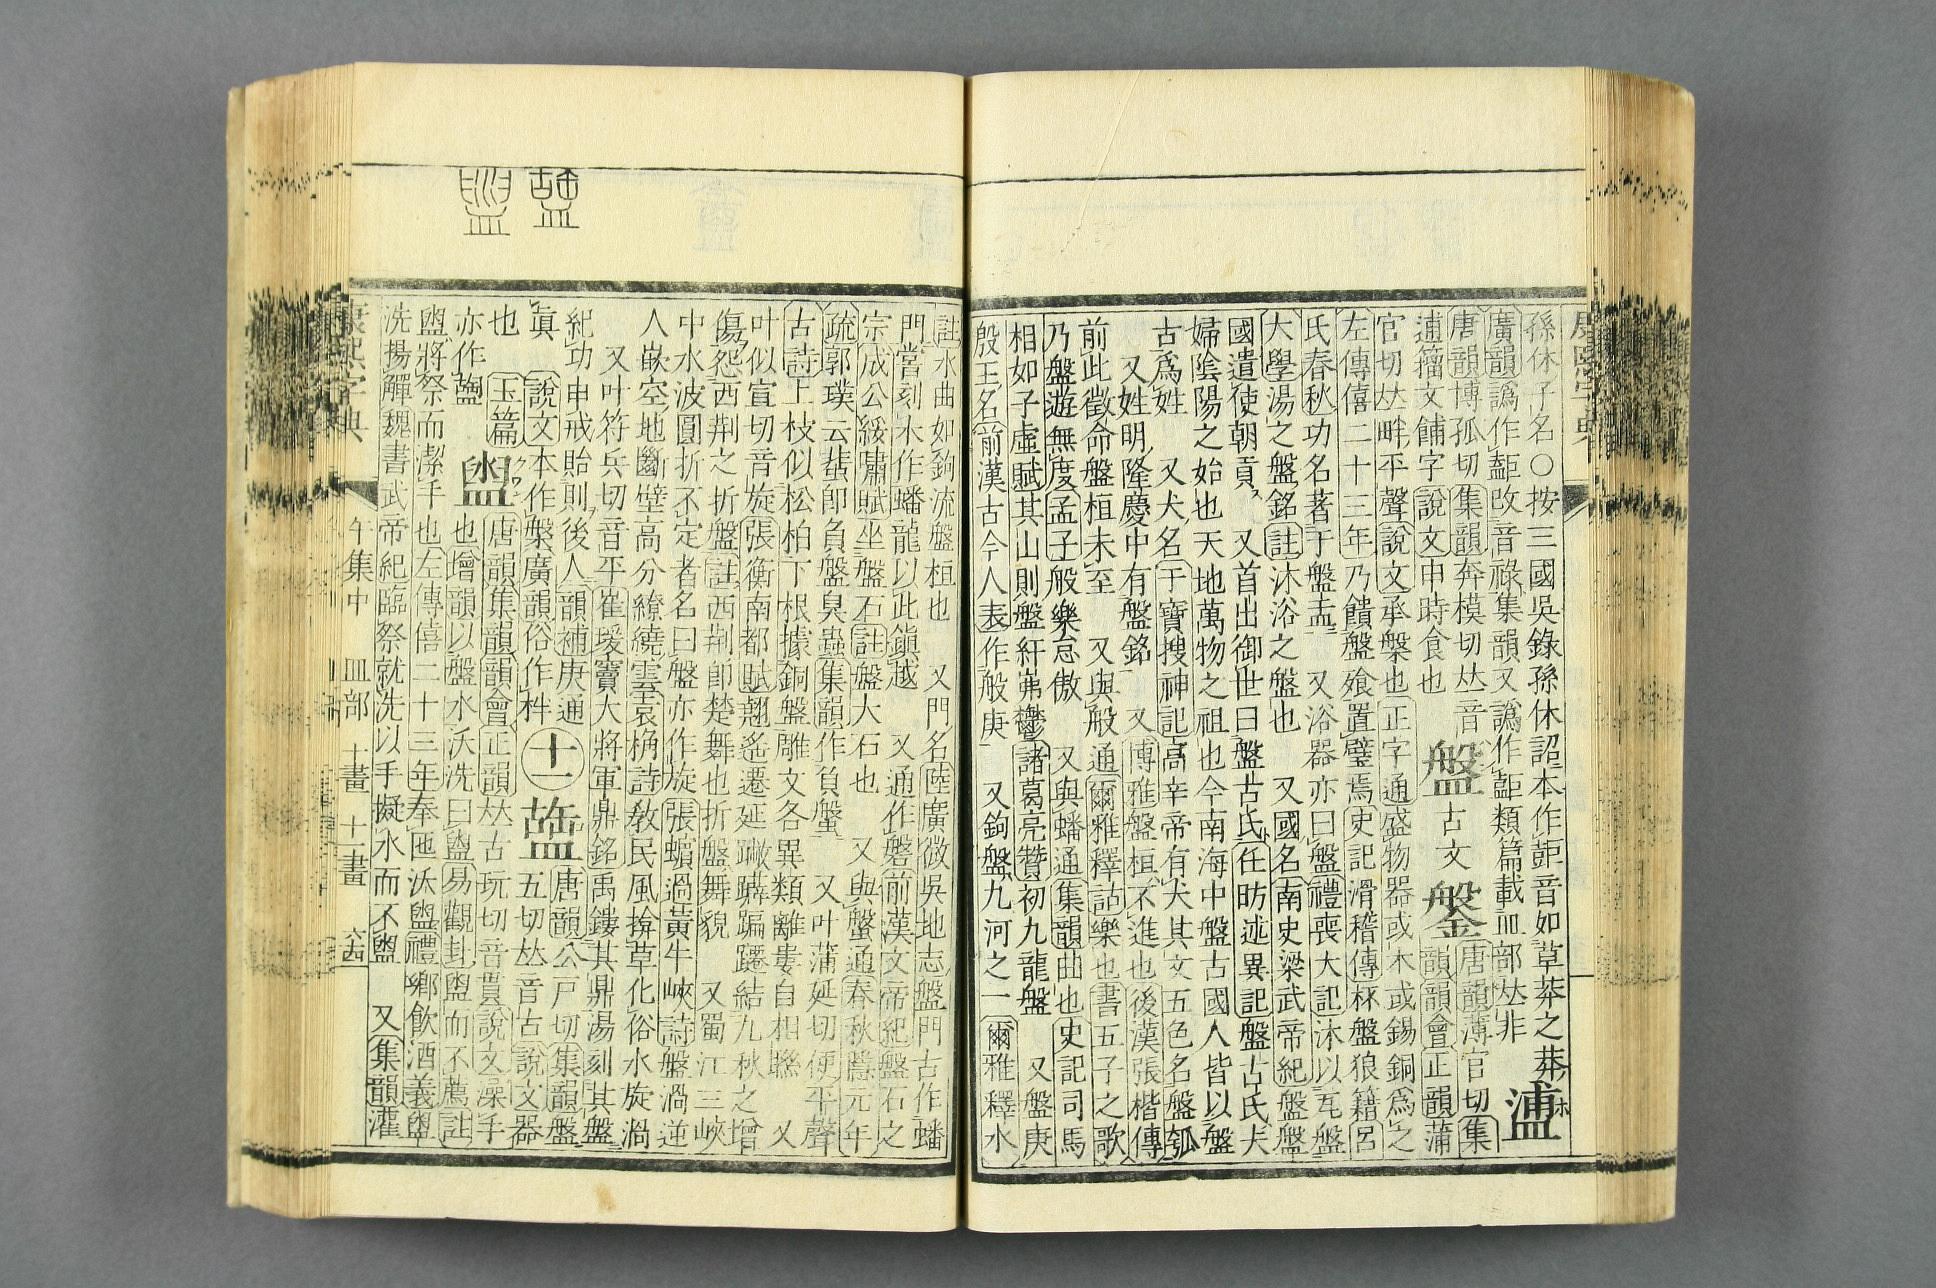 康熙字典
孫休子名○按三國吳錄孫休詔本作𧯡音如草莽之莽
廣韻譌作𧯡改音祿集韻又譌作𧯡類篇載皿部𠀤非
唐韻博孤切集韻奔模切𠀤音逋籀文餔字說文申時食也
盤 古文 鎜 唐韻薄官切集韻韻會正韻蒲官切𠀤畔平聲說文承槃也正字通盛物器或木或錫銅爲之
左傳僖二十三年乃饋盤飧置璧焉史記滑稽傳杯盤狼籍呂
氏春秋功名著于盤盂 又浴器亦曰盤禮喪大記沐以瓦盤
大學湯之盤銘註沐浴之盤也 又國名南史梁武帝紀盤盤
國遣使朝貢 又首出御世曰盤古氏任昉述異記盤古氏夫
婦陰陽之始也天地萬物之祖也今南海中盤古國人皆以盤
古爲姓 又犬名于寶搜神記高辛帝有犬其文五色名盤瓠
又姓明隆慶中有盤銘 又博雅盤桓不進也後漢張楷傳
前此徵命盤桓未至 又與般通爾雅釋詁樂也書五子之歌
乃盤遊無度孟子般樂怠傲 又與蟠通集韻曲也史記司馬
相如子虛賦其山則盤紆茀鬱諸葛亮贊初九龍盤 又盤庚
殷王名前漢古今人表作般庚 又鉤盤九河之一爾雅釋水
註水曲如鉤流盤桓也 又門名陸廣微吳地志盤門古作蟠
門嘗刻木作蟠龍以此鎮越 又通作磐前漢文帝紀盤石之
宗成公綏嘯賦坐盤石註盤大石也 又與螌通春秋隱元年
疏郭璞云蜚卽負盤臭蟲集韻作負螌 又叶蒲延切便平聲
古詩上枝似松柏下根據銅盤雕文各異類離婁自相聮 又
叶似宣切音旋張衡南都賦翹遙遷延𨇨𨇾蹁躚結九秋之增
傷怨西荆之折盤註西荆卽楚舞也折盤舞貌 又蜀江三峽
中水波圓折不定者名曰盤亦作旋張蠙過黃牛峽詩盤渦逆
人嵌空地斷壁高分繚繞雲袁桷詩敎民風揜草化俗水旋渦
又叶符兵切音平崔瑗竇大將軍鼎銘禹鏤其鼎湯刻其盤
紀功申戒貽則後人韻補庚通眞 說文本作槃廣韻俗作柈
十一
盬 唐韻公戸切集韻𠀤音古說文器也
玉篇亦作
盥 唐韻集韻韻會正韻𠀤古玩切音貫說文澡手
也增韻以盤水沃洗曰盥易觀卦盥而不薦註
盥將祭而潔手也左傳僖二十三年奉匜沃盥禮鄉飮酒義盥
洗揚觶魏書武帝紀臨祭就洗以手擬水而不盥 又集韻灌
康熙字典 午集中 皿部 十畫 十一畫 六四